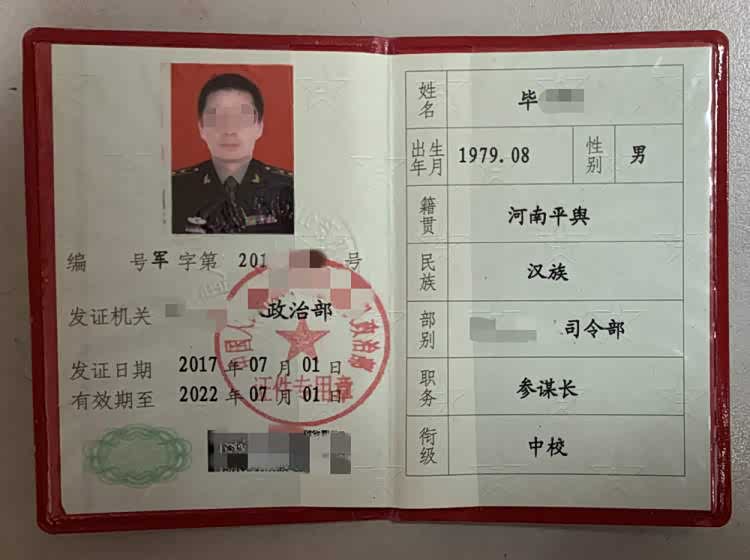 编 号 军 字第 201 号
发证机关 政治部
发证日期 2017 年 07 月 01 日
有效期至 2022 年 07 月 01 日
中国人 政治部
证件专用章
姓名 毕
出生年月 1979.08 性别 男
籍贯 河南平舆
民族 汉族
部别 司令部
职务 参谋长
衔级 中校